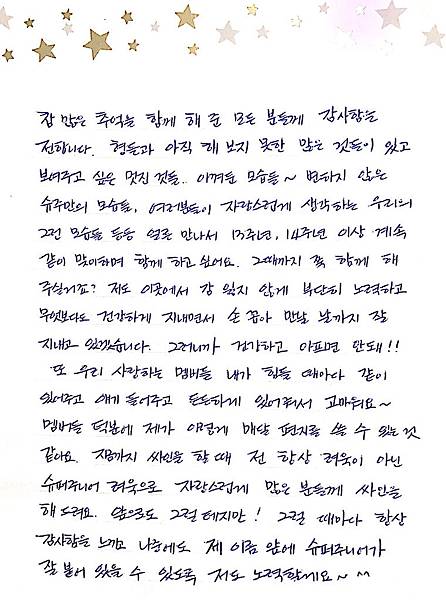 참 많은 추억을 함께 해 준 모든 분들께 감사함을
전합니다. 형들과 아직 해 보지 못한 많은 것들이 있고
보여주고 싶은 멋진 것들.. 아껴둔 모습들~ 변하지 않은
슈주만의 모습들, 여러분들이 자랑스럽게 생각하는 우리의
그런 모습들 등등 얼른 만나서 13주년, 14주년 이상 계속
같이 맞이하며 함께 하고 싶어요. 그때까지 쭉 함께 해
주실거죠? 저도 이곳에서 감 잃지 않게 부단히 노력하고
무엇보다도 건강하게 지내면서 손 꼽아 만날 날까지 잘
지내고 있겠습니다. 그러니까 건강하고 아프면 안돼!!
또 우리 사랑하는 멤버들 내가 힘들 때마다 같이
있어주고 얘기 들어주고 든든하게 있어줘서 고마워요~
멤버들 덕분에 제가 이렇게 매달 편지를 쓸 수 있는 것
같아요. 지금까지 싸인을 할 때 전 항상 려욱이 아닌
슈퍼주니어 려욱으로 자랑스럽게 많은 분들께 싸인을
해 드려요. 앞으로도 그럴 테지만! 그럴 때마다 항상
감사함을 느끼고 나중에도 제 이름 앞에 슈퍼주니어가
잘 붙어 있을 수 있도록 저도 노력할게요~ ^^